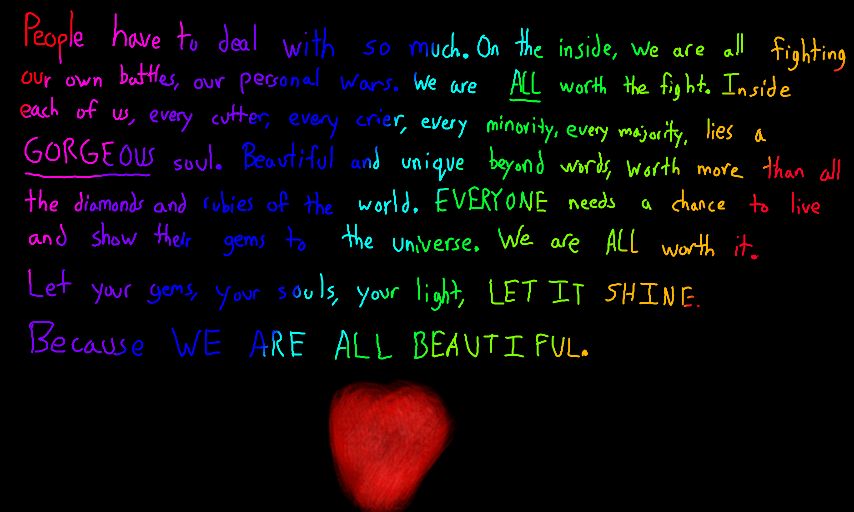 People have to deal with so much. On the inside, we are all fighting
our own battles, our personal wars. We are ALL worth the fight. Inside
each of us, every cutter, every crier, every minority, every majority, lies a
GORGEOUS soul. Beautiful and unique beyond words, worth more than all
the diamonds and rubies of the world. EVERYONE needs a chance to live
and show their gems to the universe. We are ALL worth it.
Let your gems, your souls, your light, LET IT SHINE.
Because WE ARE ALL BEAUTIFUL.